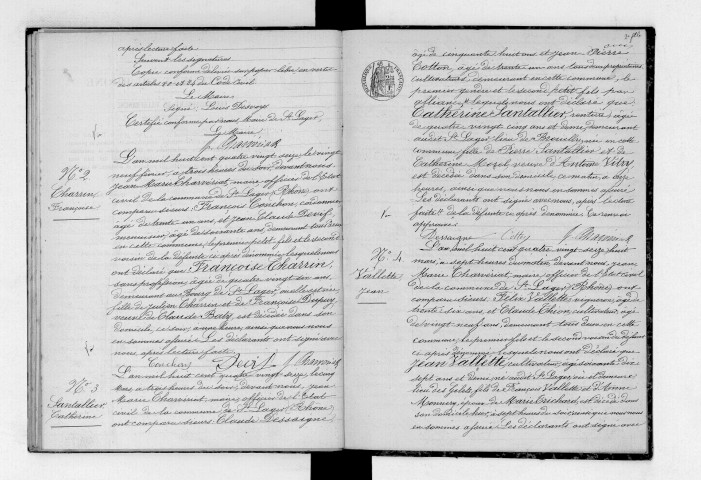 après lecture faite
Suivent les signatures
Copie conforme délivrée sur papier libre en vertu
des articles 80 et 84 du Code Civil
Le Maire
Signé Louis
Certifié conforme par nous, Maire de St Lager
Le Maire
N° 2
Charrin
Françoise
L'an mil huit cent quatre vingt seize, le vingt
neuf février, à trois heures du soir, devant nous
Jean Marie Charvériat maire officier de l'Etat
civil de la commune de St Lager (Rhône) ont
comparu sieurs François Conchon, cordonnier
âgé de trente un ans, et Jean Claude
menuisier, âgé de soixante ans, demeurant tous deux
en cette commune, le premier petit fils et le second
voisin de la défunte ci après dénommée, lesquels nous
ont déclaré que Françoise Charrin,
sans profession, âgée de quatre vingt un ans,
demeurant au Bourg de St Lager, où elle est née,
fille de Julien Charrin et de Françoise Dupuy
veuve de Claude Baty, est décédée dans son
domicile, ce soir, à une heure, ainsi que nous nous
en sommes assuré. Les déclarants ont signé avec
nous, après lecture faite.
Conchon
N° 3
Santallier
Catherine
L'an mil huit cent quatre vingt seize, le cinq
mars à trois heures du soir, devant nous, Jean
Marie Charvériat maire officier de l'Etat
civil de la commune de St Lager (Rhône)
ont comparu sieurs Claude Dessaigne,
âgé de cinquante huit ans et Jean Pierre
Cotton, âgé de trente un ans, tous deux propriétaires
cultivateurs, demeurant en cette commune, le
premier gendre et le second petit fils par
alliance, lesquels nous ont déclaré que
Catherine Santallier, rentière, âgée
de quatre vingt cinq ans et demi, demeurant
audit St Lager, lieu de Brouilly, née en cette
commune, fille de Pierre Santallier et de
Catherine Morel veuve d'Antoine Vitry
est décédée dans son domicile, ce matin, à dix
heures, ainsi que nous nous en sommes assuré.
Les déclarants ont signé avec nous, après lecture
faite.
Dessaigne Cotton
N° 4
Vallette
Jean
L'an mil huit cent quatre vingt seize, le huit
mars, à sept heures du matin, devant nous, Jean
Marie Charvériat maire officier de l'Etat civil
de la commune de St Lager, (Rhône) ont
comparu sieurs Félix Vallette, vigneron, âgé de
trente six ans, et Claude, cultivateur, âgé
de vingt neuf ans, demeurant tous deux en cette
commune, le premier fils et le second voisin du défunt
ci après dénommé, lesquels nous ont déclaré que
Jean Vallette, cultivateur, âgé soixante dix
sept ans et demi, né audit St Lager, où il demeure,
lieu des, fils de François Vallette et d'Anne
Monnery, époux de Marie Trichard, est décédé dans
son domicile hier, à sept heures du soir, ainsi que nous nous
en sommes assuré. Les déclarants ont signé avec